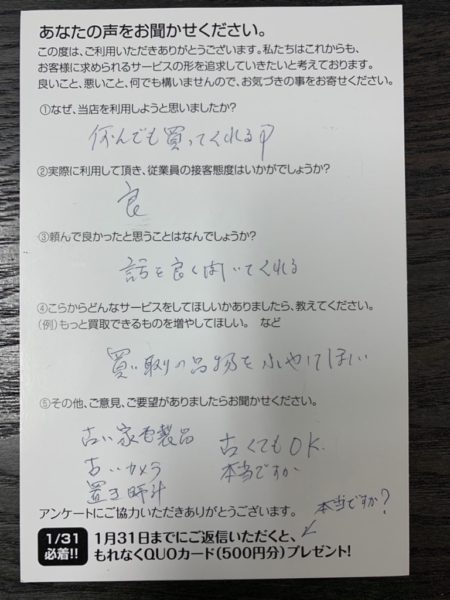 あなたの声をお聞かせください。
この度は、ご利用いただきありがとうございます。私たちはこれからも、
お客様に求められるサービスの形を追求していきたいと考えております。
良いこと、悪いこと、何でも構いませんので、お気づきの事をお寄せください。
①なぜ、当店を利用しようと思いましたか?
何んでも買ってくれる
②実際に利用して頂き、従業員の接客態度はいかがでしょうか?
良
③頼んで良かったと思うことはなんでしょうか?
話を良く聞いてくれる
④こらからどんなサービスをしてほしいかありましたら、教えてください。
(例)もっと買取できるものを増やしてほしい。 など
買い取りの品物をふやしてほしい
⑤その他、ご意見、ご要望がありましたらお聞かせください。
古い家電製品 古くてもOK.
古いカメラ 本当ですか
置き時計
アンケートにご協力いただきありがとうございます。 本当ですか?
1/31 必着!! 1月31日までにご返信いただくと、
もれなくQUOカード(500円分)プレゼント!